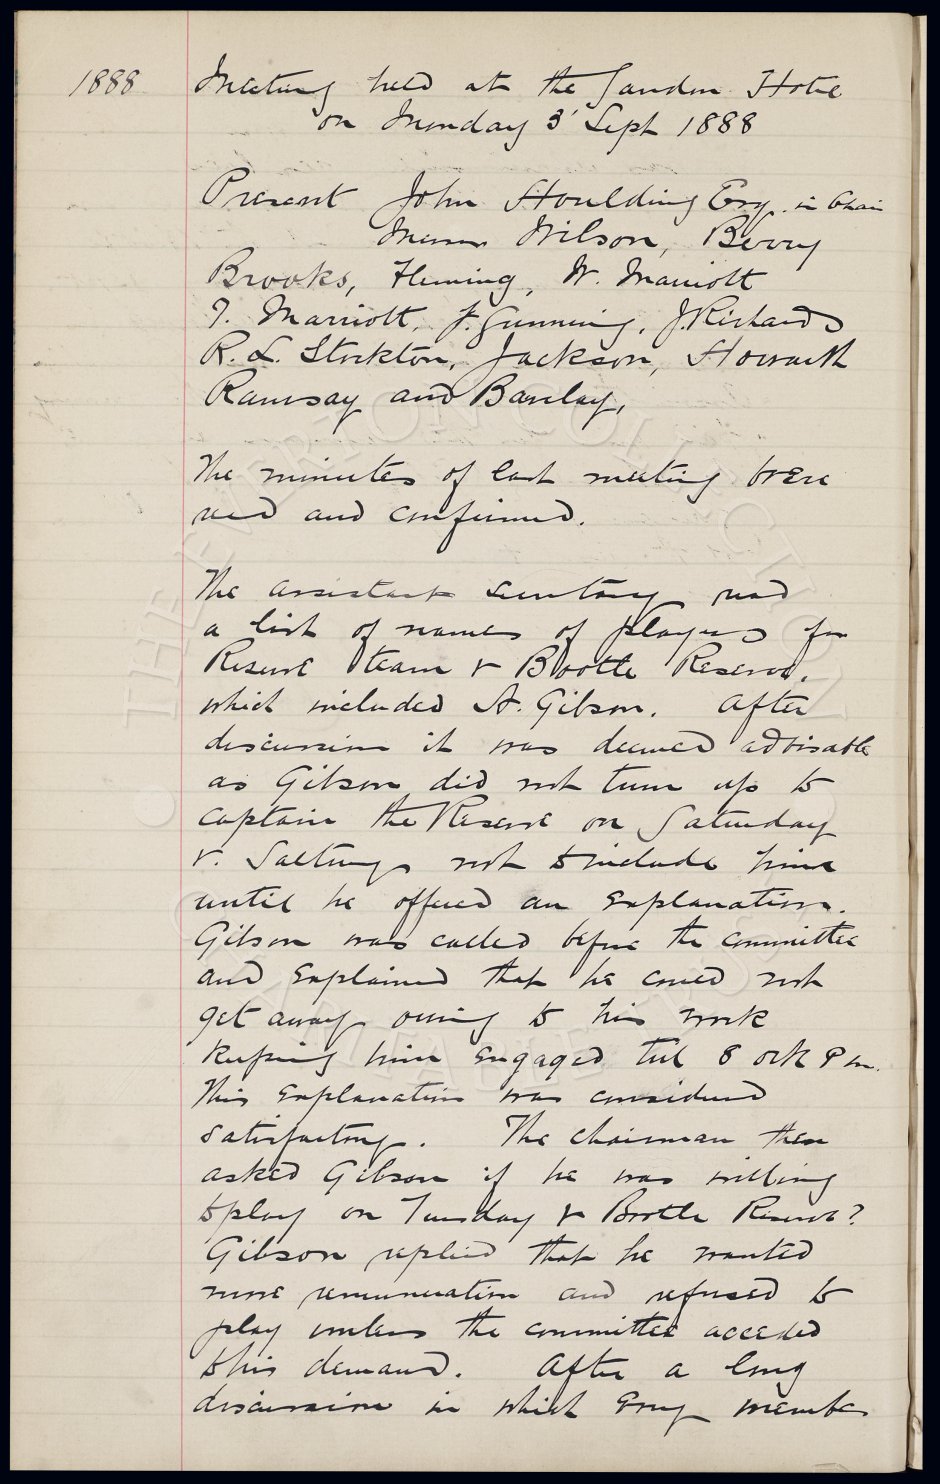 1888
Meeting held at the Sandon Hotel
on Monday 3' Sept 1888
Present John Houlding Esq. in Chair
Messrs Wilson, Berry
Brooks, Fleming, W. Marriott
T. Marriott, J. Gunning, J. Richards
R. L. Stockton, Jackson, Howarth
Ramsay and Barclay,
The minutes of last meeting were
read and confirmed.
The assistant secretary read
a list of names of players for
Reserve team v Bootle Reserve,
which included A. Gibson. After
discussion it was deemed advisable
as Gibson did not turn up to
captain the Reserve on Saturday
v. Saltney not to include him
until he offered an explanation.
Gibson was called before the committee
and explained that he could not
get away owing to his work
keeping him engaged till 8 o'clk P m.
This explanation was considered
satisfactory. The chairman then
asked Gibson if he was willing
to play on Tuesday v Bootle Reserve?
Gibson replied that he wanted
more remuneration and refused to
play unless the committee acceded
to his demand. After a long
discussion in which every member
THE EVERTON COLLECTION
CHARITABLE TRUST